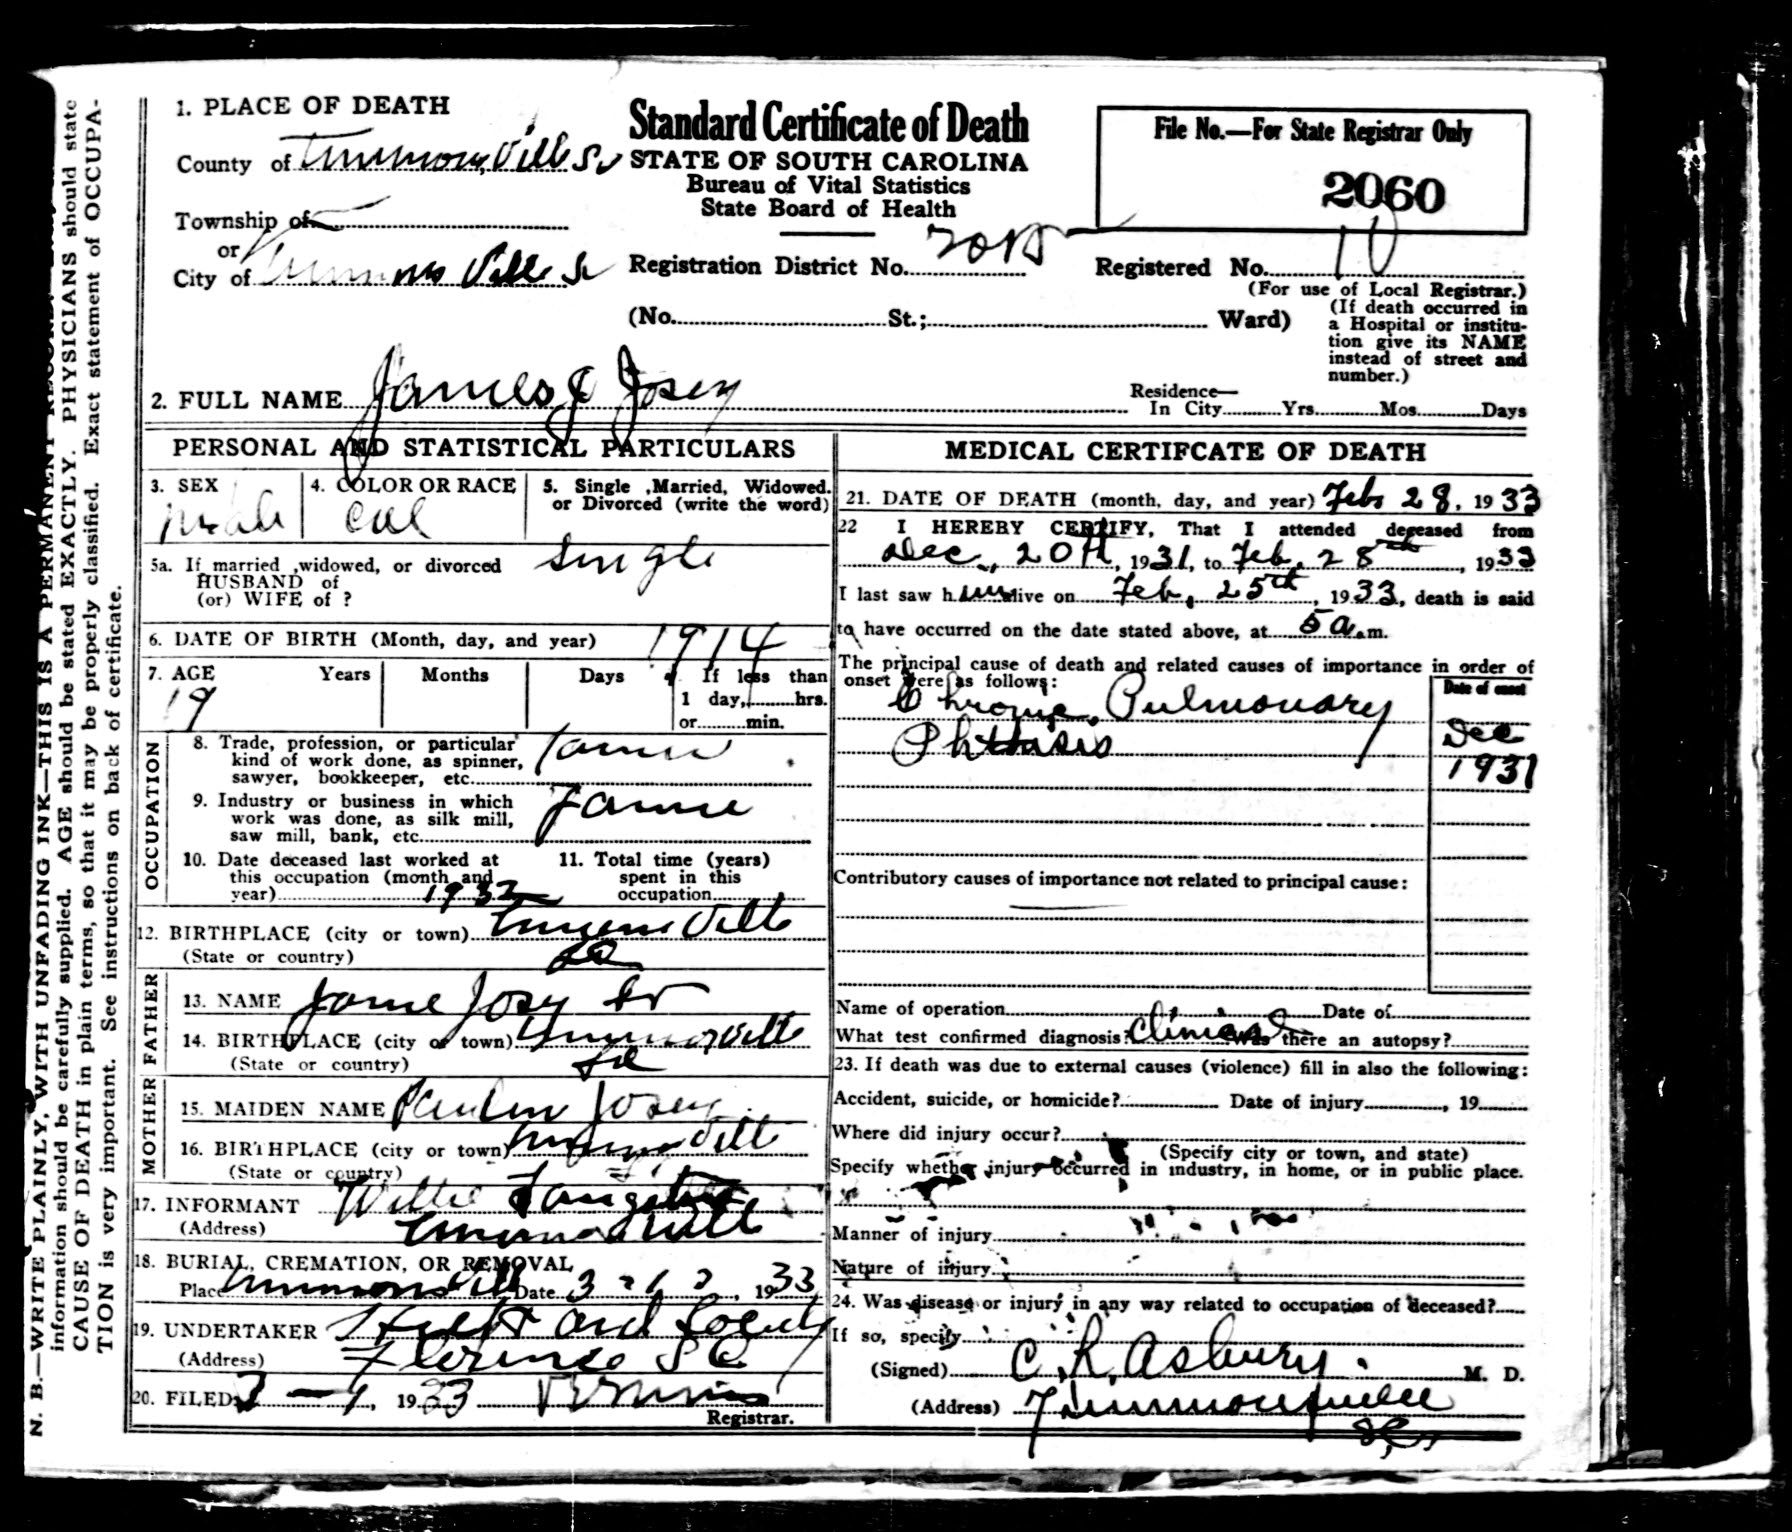 1. PLACE OF DEATH
County of Timmons Ville Sc
Township of
or
City of Timmons Ville Sc
Standard Certificate of Death
STATE OF SOUTH CAROLINA
Bureau of Vital Statistics
State Board of Health
File No.—For State Registrar Only
2060
Registration District No.
Registered No. 10
(For use of Local Registrar.)
(No. St.; Ward)
(If death occurred in
a Hospital or institu-
tion give its NAME
instead of street and
number.)
2. FULL NAME James J Josey
Residence—
In City Yrs. Mos. Days
PERSONAL AND STATISTICAL PARTICULARS
3. SEX
male
4. COLOR OR RACE
Col
5. Single ,Married, Widowed.
or Divorced (write the word)
Single
5a. If married ,widowed, or divorced
HUSBAND of
(or) WIFE of ?
6. DATE OF BIRTH (Month, day, and year) 1914
7. AGE Years Months Days If less than
19 1 day, hrs.
or min.
OCCUPATION
8. Trade, profession, or particular
kind of work done, as spinner,
sawyer, bookkeeper, etc.
9. Industry or business in which
work was done, as silk mill,
saw mill, bank, etc.
10. Date deceased last worked at
this occupation (month and
year) 1932
11. Total time (years)
spent in this
occupation
12. BIRTHPLACE (city or town)
(State or country)
FATHER
13. NAME Jame Josey Sr
14. BIRTHPLACE (city or town) Timmonsville
(State or country) SC
MOTHER
15. MAIDEN NAME Josey
16. BIRTHPLACE (city or town)
(State or country)
17. INFORMANT Willie
(Address) Timmonsville
18. BURIAL, CREMATION, OR REMOVAL
Place Timmonsville Date 3 - 1933
19. UNDERTAKER
(Address) Florence S C
20. FILED 3 — 1, 1933
Registrar.
MEDICAL CERTIFCATE OF DEATH
21. DATE OF DEATH (month, day, and year) Feb 28, 1933
22 I HEREBY CERTIFY, That I attended deceased from
Dec., 20th, 1931, to Feb. 28th, 1933
I last saw him alive on Feb, 25th, 1933, death is said
to have occurred on the date stated above, at 5 a.m.
The principal cause of death and related causes of importance in order of
onset were as follows:
Date of onset
Chronic Pulmonary
Phthisis
Dec
1931
Contributory causes of importance not related to principal cause:
Name of operation Date of
What test confirmed diagnosis? Clinical Was there an autopsy?
23. If death was due to external causes (violence) fill in also the following:
Accident, suicide, or homicide? Date of injury, 19
Where did injury occur?
(Specify city or town, and state)
Specify whether injury occurred in industry, in home, or in public place.
Manner of injury
Nature of injury
24. Was disease or injury in any way related to occupation of deceased?
If so, specify
(Signed) C. R. Asbury. M. D.
(Address) Timmonsville
S.C.
N. B.—WRITE PLAINLY, WITH UNFADING INK—THIS IS A PERMANENT RECORD.
information should be carefully supplied. AGE should be stated EXACTLY. PHYSICIANS should state
CAUSE OF DEATH in plain terms, so that it may be properly classified. Exact statement of OCCUPA-
TION is very important. See instructions on back of certificate.